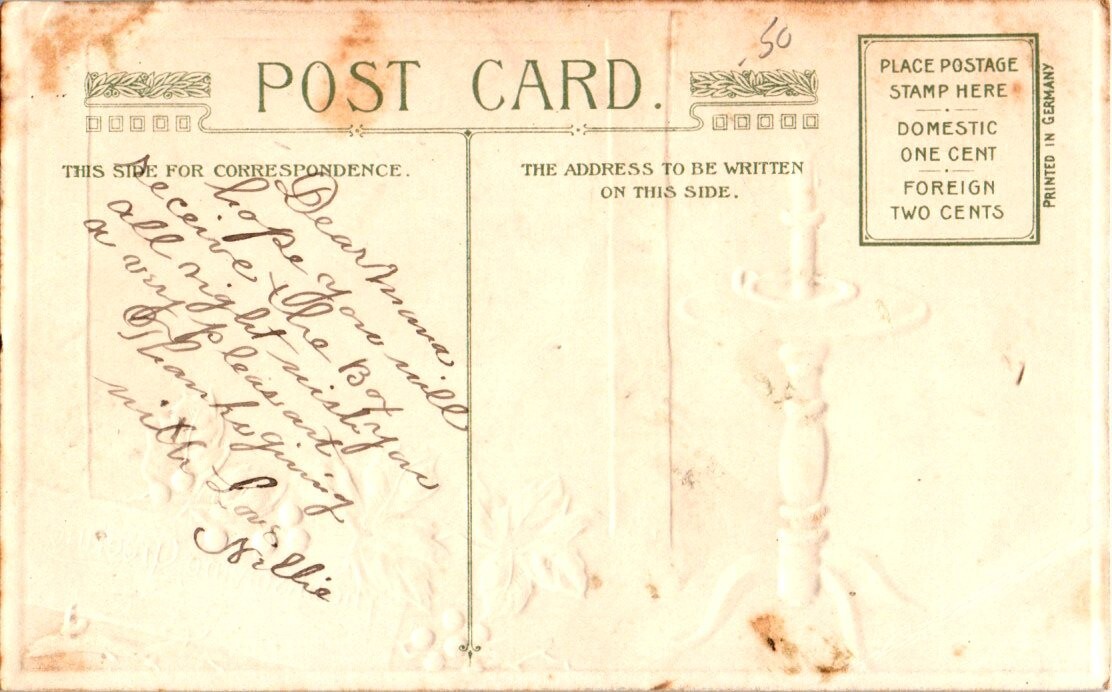 POST CARD.
.50
PLACE POSTAGE
STAMP HERE
DOMESTIC
ONE CENT
FOREIGN
TWO CENTS
PRINTED IN GERMANY
THIS SIDE FOR CORRESPONDENCE.
THE ADDRESS TO BE WRITTEN
ON THIS SIDE.
Dear Mama
hope you will
receive the Box
all right wish you
a very pleasant
Thanksgiving
with Love
Willie